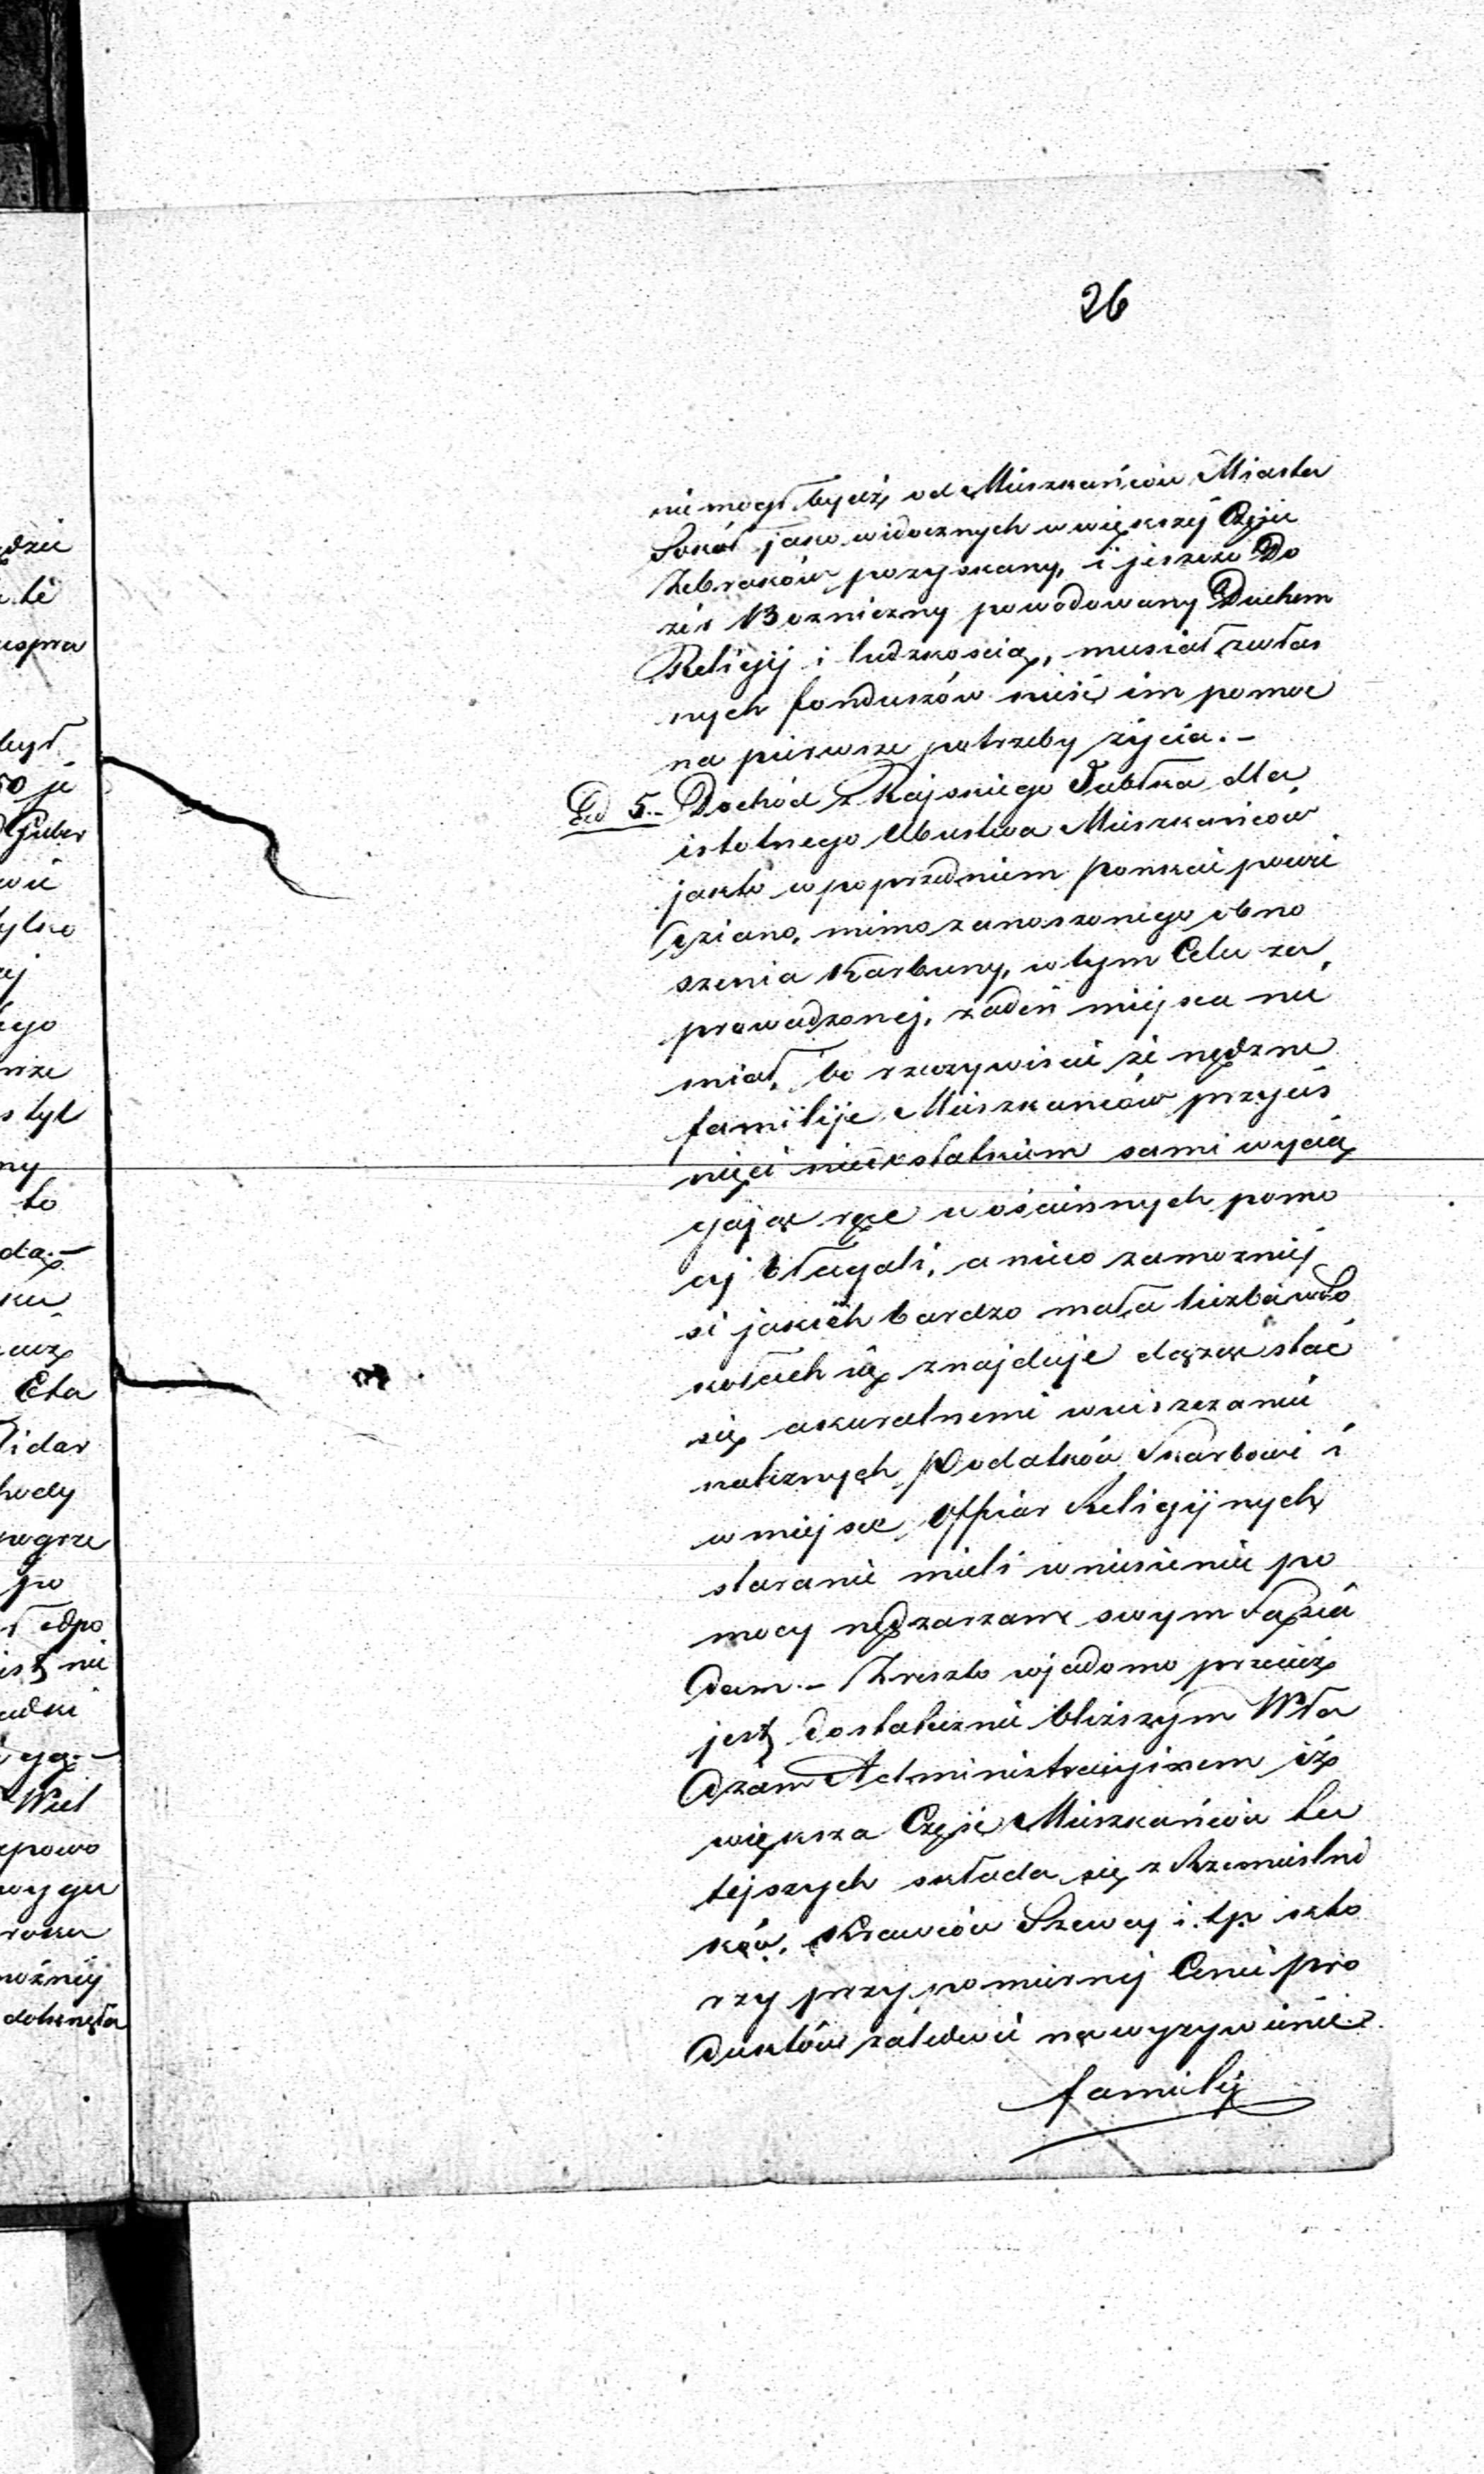 26
nie mogł bydź od Mieszkańców Miasta
Sokoł jako widocznych w większej Części
Żebraków pozyskany, i jeszcze Do
zór Bozniczny powodowany Duchem
Religij i ludzkością, musiał z włas
nych fonduszów nieść im pomoc
na pierwsze potrzeby życia. –
Ad 5. – Dochód z Rajskiego Jabłka dla
istotnego Ubustwa Mieszkańców
jak to w poprzedniem Ponkcie powie
dziano, mimo zanoszonego obno
szenia Karbuny, w tym Celu za
prowadzonej, żaden miejsca nie
miał, bo rzeczywiście że nędzne
familije Mieszkańców przyciś
nięci niedostatkiem sami wycią
gając ręce u ościennych pomo
cy błagali, a nieco zamożniej
si jakich bardzo mała liczba w So
kołach się znajduje dążąc stać
się akuratnemi w uiszczaniu
należnych Podatków Skarbowi i
w miejsce Offiar Religijnych
staranie mieli w niesieniu po
mocy nędzarzom swym Sąsia
dom. – Zreszto wjadomo przecież
jest dostatecznie bliższym Wła
dzom Administracyjnem iż
większa Część Mieszkańców tu
tejszych składa się z Rzemieślni
ków, Krawców Szewcy i. t. p. któ
rzy przy pomiernej Cenie pro
duktów zaledwie na wyżywienie
familij
ądzie
te
uspra
był
50 je
Guber
tylko
ej
ego
styl
ny
to
da. –
Eta
hody
pogrze
po
odpo
jest nie
Wiel
powo
roku
możniej
dotknęła